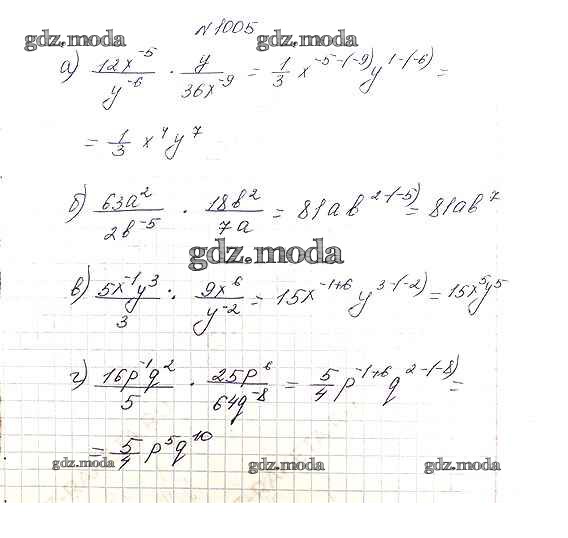 N 1005
gdz.moda gdz.moda
а) 12x^-5 / y^-6 · y / 36x^-9 = 1/3 x^-5-(-9) y^1-(-6) =
= 1/3 x^4 y^7
б) 63a^2 / 2b^-5 · 18b^2 / 7a = 81ab^2-(-5) = 81ab^7
gdz.moda
в) 5x^-1 y^3 / 3 · 9x^6 / y^-2 = 15x^-1+6 y^3-(-2) = 15x^5 y^5
г) 16p^-1 q^2 / 5 · 25p^6 / 64q^-8 = 5/4 p^-1+6 q^2-(-8) =
= 5/4 p^5 q^10
gdz.moda gdz.moda gdz.moda